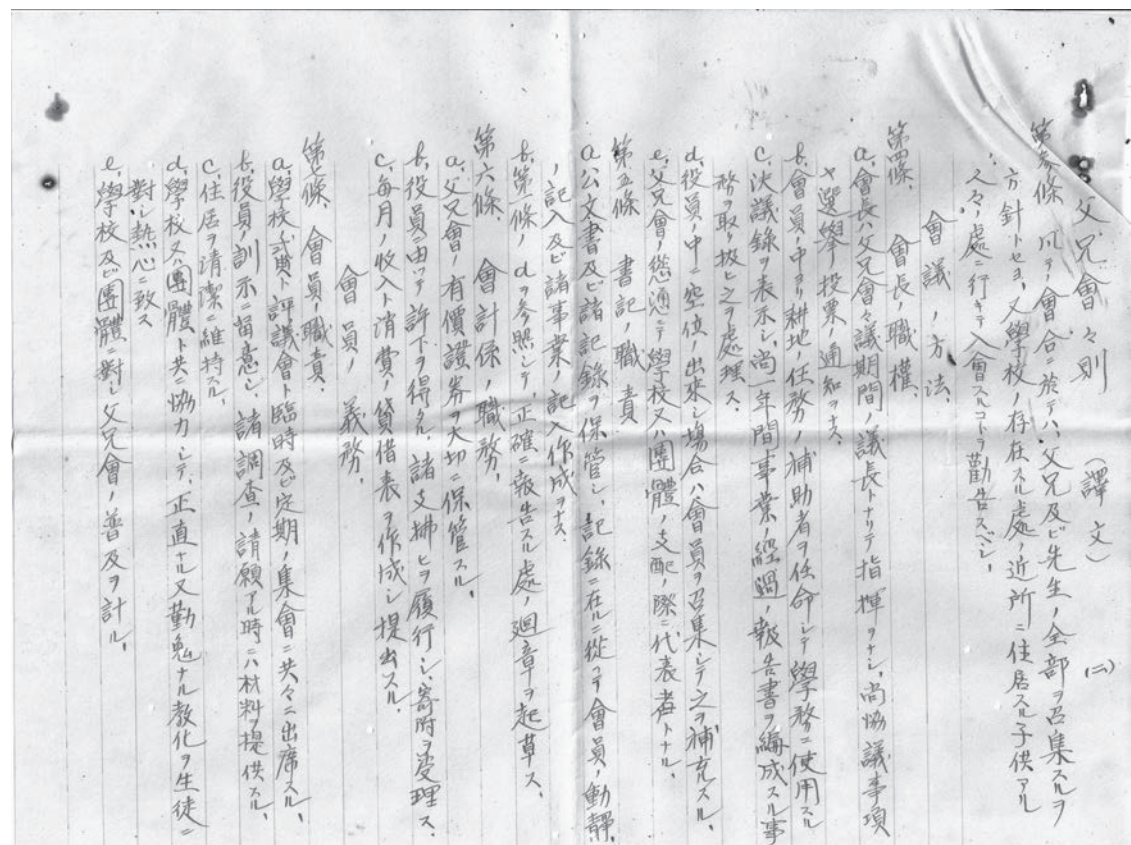 父兄會々則 （譯文） (二)
第参條 凡テ會合ニ於テハ、父兄及ビ先生ノ全部ヲ召集スルヲ
方針トセヨ、又學校ノ存在スル處ノ近所ニ住居スル子供アル
人々ノ處ニ行キテ入會スルコトヲ勸告スベシ、
會議ノ方法、
第四條、 會長ノ職權、
a、會長ハ父兄會々議期間ノ議長トナリテ指揮ヲナシ、尚協議事項
ヤ選擧投票ノ通知ヲナス、
b、會員ノ中ヨリ耕地ノ任務ノ補助者ヲ任命シテ學務ニ使用スル
c、決議錄ヲ表示シ、尚一年間事業ノ經過ノ報告書ヲ編成スル事
務ヲ取リ扱ヒ之ヲ処理ス、
d、役員ノ中ニ空位ノ出來シ場合ハ會員ヲ召集シテ之ヲ補充スル、
e、父兄會ノ總通ニテ學校又ハ團體ノ支配ノ際ニ代表者トナル、
第五條 書記ノ職責
a、公文書及ビ諸記錄ヲ保管シ、記錄ニ在ルニ從ッテ會員ノ動靜、
ノ記入及ビ諸事業ノ記入作成ヲナス、
b、第一條ノdヲ參照シテ、正確ニ報告スル處ノ廻章ヲ起草ス、
第六條、 會計係ノ職務、
a、父兄會ノ有價證券ヲ大切ニ保管スル、
b、役員ニ由ッテ許下ヲ得タル諸支拂ヒヲ履行シ、寄附ヲ受理ス、
c、每月ノ收入ト消費ノ貸借表ヲ作成シ提出スル、
會員ノ義務、
第七條、會員ノ職責、
a、學校ノ式典ト評議會ト臨時及ビ定期ノ集會ニ共々ニ出席スル、
b、役員ノ訓示ニ留意シ、諸調査ノ請願アル時ニハ材料ヲ提供スル、
c、住居ヲ清潔ニ維持スル、
d、學校又ハ團體ト共ニ協力シテ、正直ナル又勤勉ナル教化ヲ生徒ニ
對シ熱心ニ致ス
e、學校及ビ團體ニ對シ父兄會ノ普及ヲ計ル、